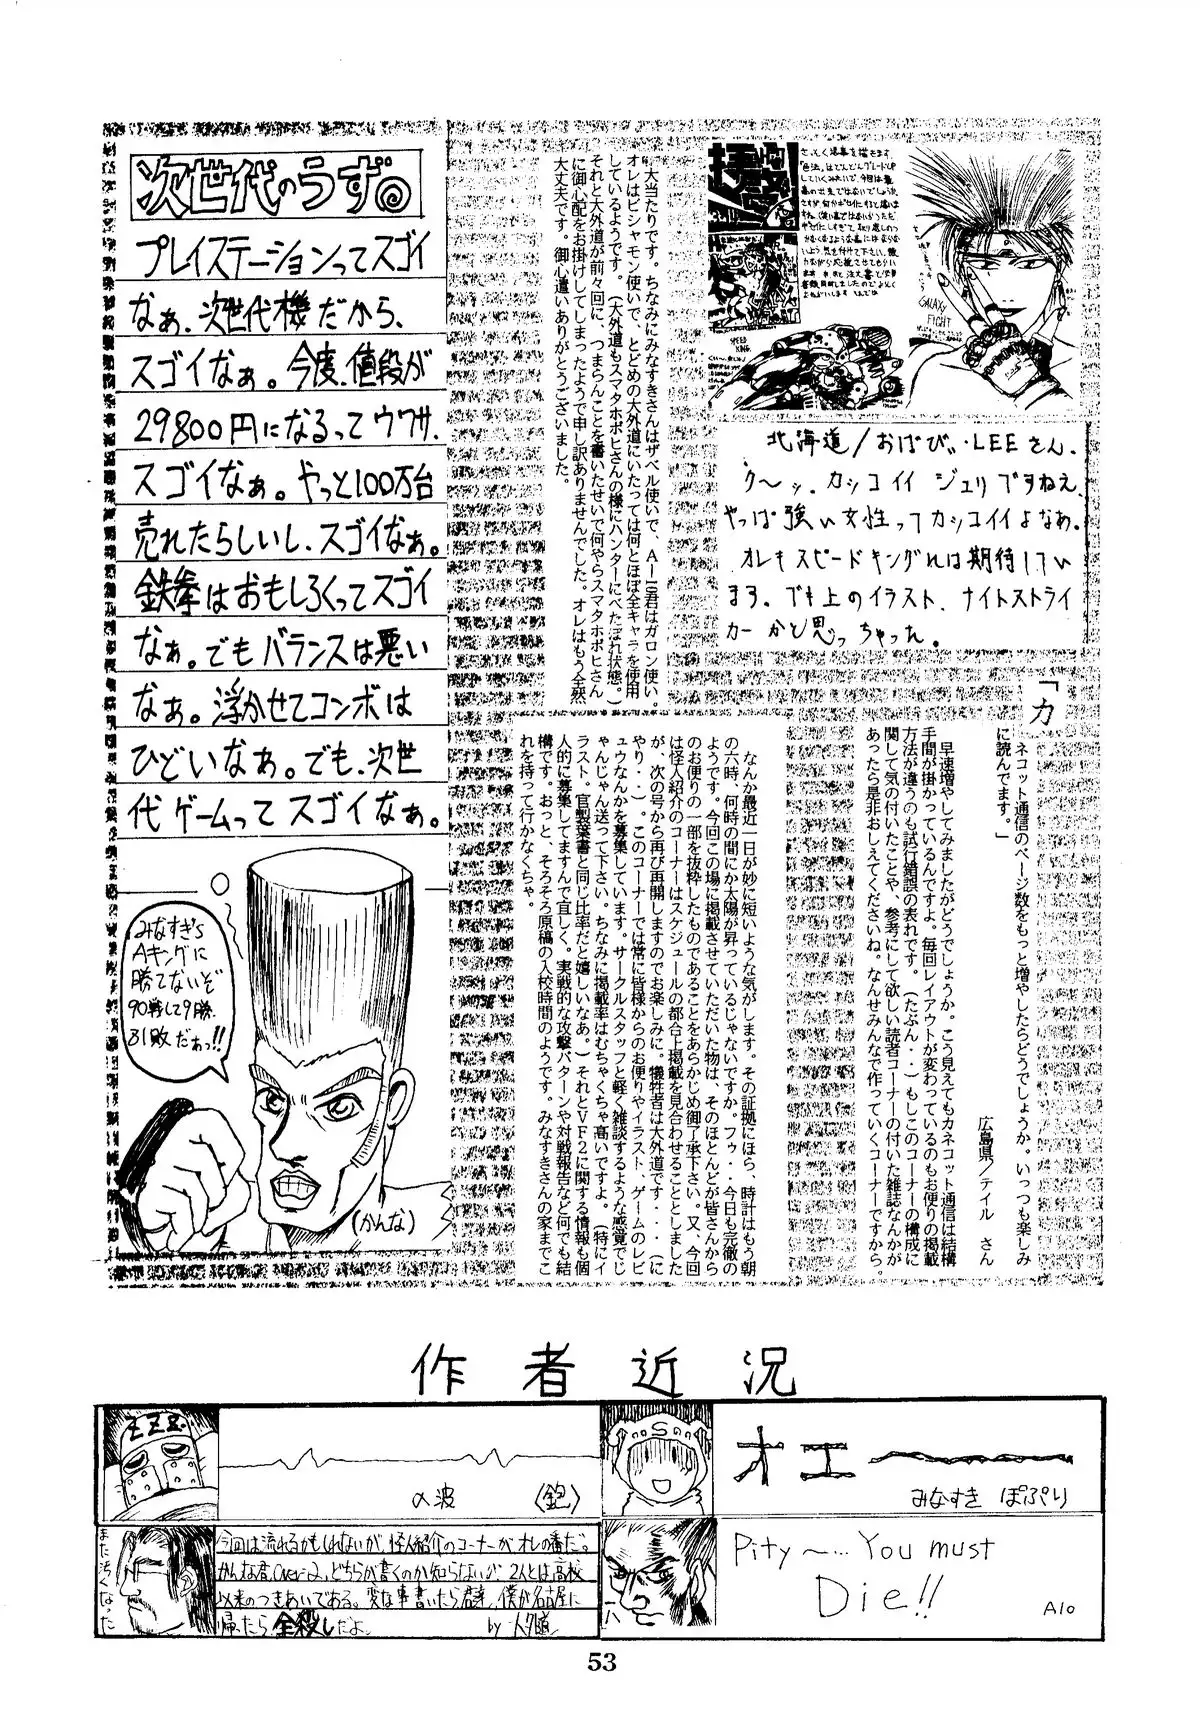 大当たりです。ちなみにみなすきさんはザベル使いで、A—10君はガロン使い。
オレはビシャモン使いで、とどめの大外道にいたっては何とほぼ全キャラを使用
しているようです。(大外道もスマタホポヒさんの様にハンターにべたぼれ状態。)
それと大外道が前々回に、つまらんことを書いたせいで何やらスマタホポヒさん
に御心配をお掛けしてしまったようで申し訳ありませんでした。オレはもう全然
大丈夫です。御心遣いありがとうございました。
GALAXY
FIGHT
SPEED
KING
北海道/おばびぃ・LEEさん.
ク〜ッ.カッコイイ ジェリですねえ.
やっぱ強い女性ってカッコイイよなぁ。
オレキスピードキングれは期待してい
ます。でも上のイラスト、ナイトストライ
カーかと思っちゃった。
「カ
ネコット通信のページ数をもっと増やしたらどうでしょうか。いっつも楽しみ
に読んでます。」
広島県/テイル さん
早速増やしてみましたがどうでしょうか。こう見えてもカネコット通信は結構
手間が掛かっているんですよ。毎回レイアウトが変わっているのもお便りの掲載
方法が違うのも試行錯誤の表れです。(たぶん・・)もしこのコーナーの構成に
関して気の付いたことや、参考にして欲しい読者コーナーの付いた雑誌なんかが
あったら是非おしえてくださいね。なんせみんなで作っていくコーナーですから。
なんか最近一日が妙に短いような気がします。その証拠にほら、時計はもう朝
の六時、何時の間にか太陽が昇っているじゃないですか。フゥ・・今日も完徹の
ようです。今回この場に掲載させていただいた物は、そのほとんどが皆さんから
のお便りの一部を抜粋したものであることをあらかじめ御了承下さい。又、今回
は怪人紹介のコーナーはスケジュールの都合上掲載を見合わせることとしました
が、次の号から再び再開しますのでお楽しみに。犠牲者は大外道です・・・(に
やり・・)。このコーナーでは常に皆様からのお便りやイラスト、ゲームのレビ
ュウなんかを募集しています。サークルスタッフと軽く雑談するような感覚でじ
ゃんじゃん送って下さい。ちなみに掲載率はむちゃくちゃ高いですよ。(特にイ
ラスト、官製葉書と同じ比率だと嬉しいなあ。)それとVF2に関する情報も個
人的に募集してますんで宜しく。実戦的な攻撃パターンや対戦報告など何でも結
構です。おっと、そろそろ原稿の入校時間のようです。みなすきさんの家までこ
れを持って行かなくちゃ。
次世代のうず
プレイステーションってスゴイ
なぁ、次世代機だから、
スゴイなぁ。今度、値段が
29800円になるってウワサ.
スゴイなぁ。やっと100万台
売れたらしいし、スゴイなぁ。
鉄拳はおもしろくってスゴイ
なぁ。でもバランスは悪い
なぁ。浮かせてコンボは
ひどいなぁ。でも、次世
代ゲームってスゴイなぁ。
みなすぎ's
Aキングに
勝てないぞ
90戦して9勝.
81敗だぁっ!!
(かんな)
作者近況
ZZZ..
αの波 〈鉋〉
オエ〜
みなすき ぽぷり
また汚くなった
今回は流れるかもしれないが、怪人紹介のコーナーがオレの番だ。
かんな君、Over-2、どちらが書くのか知らないが、2人とは高校
以来のつきあいである。変な事書いたら君達、僕が名古屋に
帰ったら全殺しだよ。 by 大外道
Pity〜… You must
Die!!
A10
53